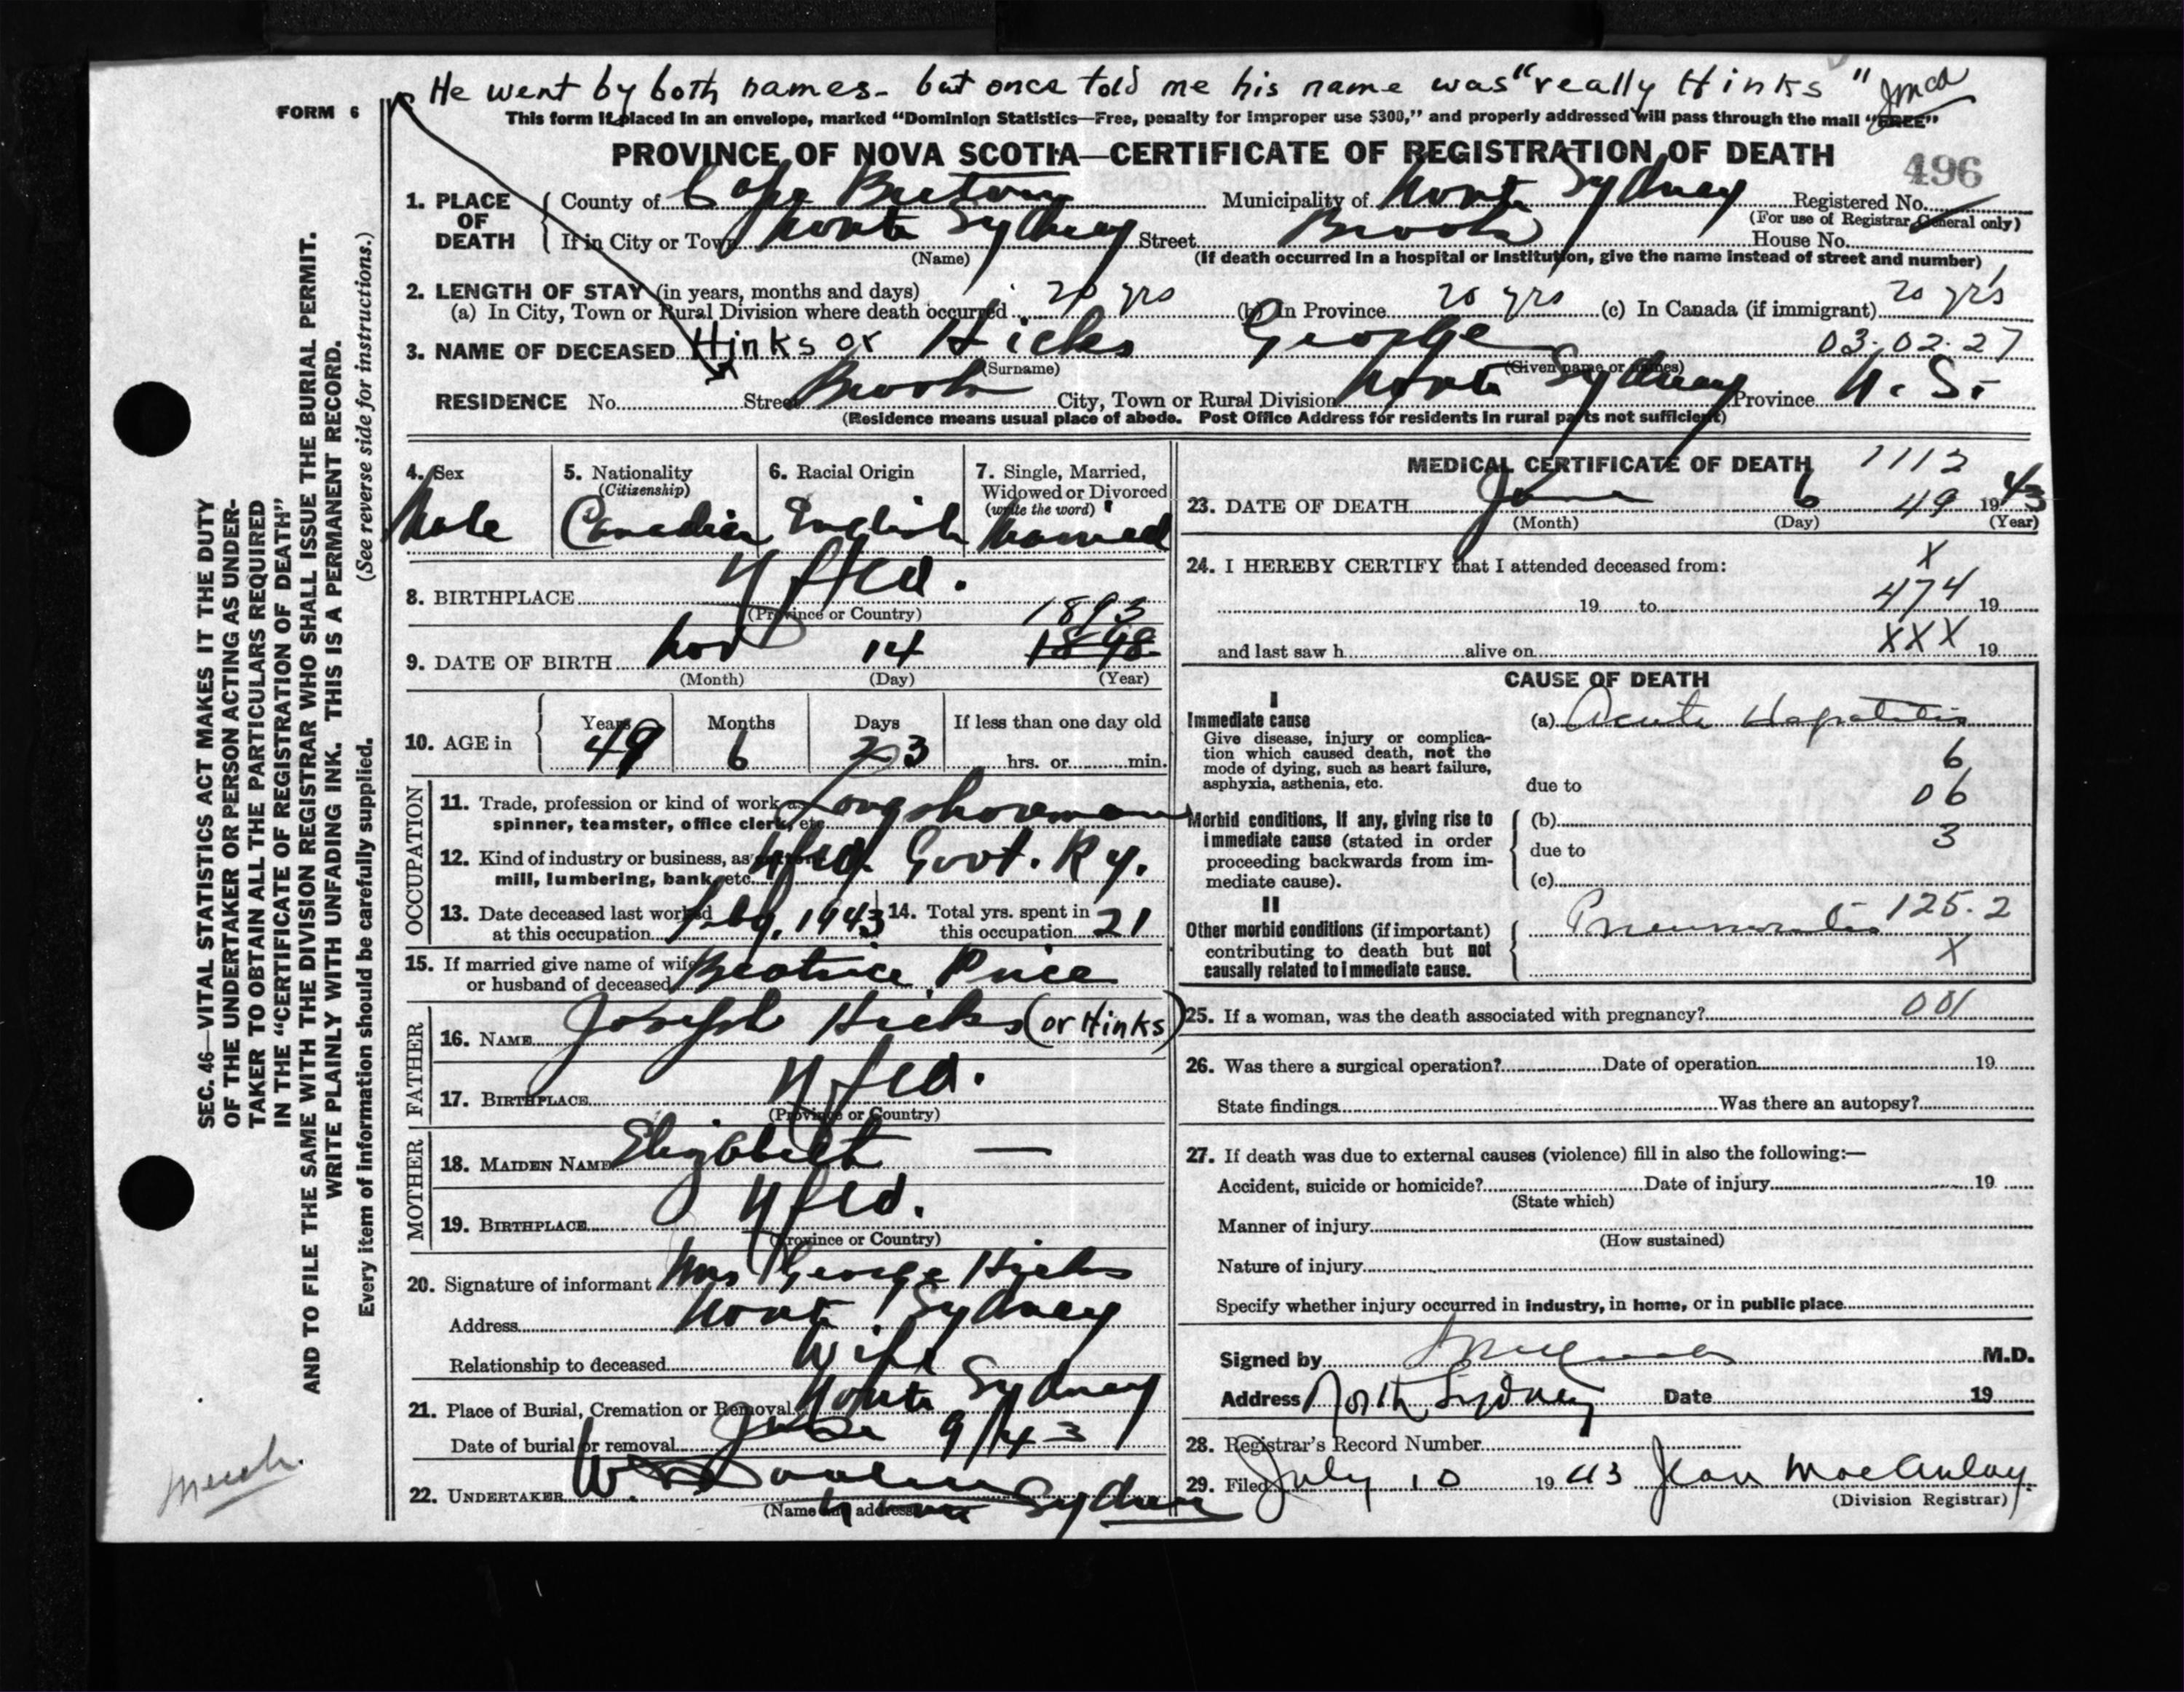 He went by both names - but once told me his name was "really Hinks" Jmca
FORM 6
This form if placed in an envelope, marked "Dominion Statistics—Free, penalty for improper use $300," and properly addressed will pass through the mail "FREE"
PROVINCE OF NOVA SCOTIA—CERTIFICATE OF REGISTRATION OF DEATH
496
1. PLACE OF DEATH
County of Cape Breton Municipality of North Sydney Registered No.
(For use of Registrar General only)
If in City or Town North Sydney Street Brook House No.
(Name) (If death occurred in a hospital or institution, give the name instead of street and number)
2. LENGTH OF STAY (in years, months and days)
(a) In City, Town or Rural Division where death occurred 20 yrs (b) In Province 20 yrs (c) In Canada (if immigrant) 20 yrs
3. NAME OF DECEASED Hinks or Hicks George 03.02.27
(Surname) (Given name or names)
RESIDENCE No. Street Brook City, Town or Rural Division North Sydney Province N. S.
(Residence means usual place of abode. Post Office Address for residents in rural parts not sufficient)
4. Sex
Male
5. Nationality
(Citizenship)
Canadian
6. Racial Origin
English
7. Single, Married,
Widowed or Divorced
(write the word)
Married
8. BIRTHPLACE Nfld.
(Province or Country)
1893
9. DATE OF BIRTH Nov 14 1898
(Month) (Day) (Year)
10. AGE in
Years Months Days If less than one day old
49 6 23 hrs. or min.
OCCUPATION
11. Trade, profession or kind of work as Longshoreman
spinner, teamster, office clerk, etc.
12. Kind of industry or business, as cotton Nfld. Govt. Ry.
mill, lumbering, bank, etc.
13. Date deceased last worked
at this occupation Feby. 1943
14. Total yrs. spent in
this occupation 21
15. If married give name of wife
or husband of deceased Beatrice Price
FATHER
16. NAME Joseph Hicks (or Hinks)
17. BIRTHPLACE Nfld.
(Province or Country)
MOTHER
18. MAIDEN NAME Elizabeth —
19. BIRTHPLACE Nfld.
(Province or Country)
20. Signature of informant Mrs George Hicks
Address North Sydney
Relationship to deceased Wife
21. Place of Burial, Cremation or Removal North Sydney
Date of burial or removal June 9/43
22. UNDERTAKER W. Sydney
(Name and address)
MEDICAL CERTIFICATE OF DEATH 1112
23. DATE OF DEATH June 6 49 1943
(Month) (Day) (Year)
24. I HEREBY CERTIFY that I attended deceased from: X
19 to 474 19
and last saw h alive on XXX 19
CAUSE OF DEATH
I
Immediate cause
Give disease, injury or complica-
tion which caused death, not the
mode of dying, such as heart failure,
asphyxia, asthenia, etc.
(a) Acute Hepatitis
6
due to 06
Morbid conditions, if any, giving rise to
immediate cause (stated in order
proceeding backwards from im-
mediate cause).
(b)
3
due to
(c)
II
Other morbid conditions (if important)
contributing to death but not
causally related to immediate cause.
125.2
X
25. If a woman, was the death associated with pregnancy? 001
26. Was there a surgical operation? Date of operation 19
State findings Was there an autopsy?
27. If death was due to external causes (violence) fill in also the following:—
Accident, suicide or homicide? Date of injury 19
(State which)
Manner of injury
(How sustained)
Nature of injury
Specify whether injury occurred in industry, in home, or in public place
Signed by M.D.
Address North Sydney Date 19
28. Registrar's Record Number
29. Filed July 10 1943 Jean MacAulay
(Division Registrar)
SEC. 46—VITAL STATISTICS ACT MAKES IT THE DUTY
OF THE UNDERTAKER OR PERSON ACTING AS UNDER-
TAKER TO OBTAIN ALL THE PARTICULARS REQUIRED
IN THE "CERTIFICATE OF REGISTRATION OF DEATH"
AND TO FILE THE SAME WITH THE DIVISION REGISTRAR WHO SHALL ISSUE THE BURIAL PERMIT.
WRITE PLAINLY WITH UNFADING INK. THIS IS A PERMANENT RECORD.
Every item of information should be carefully supplied. (See reverse side for instructions.)